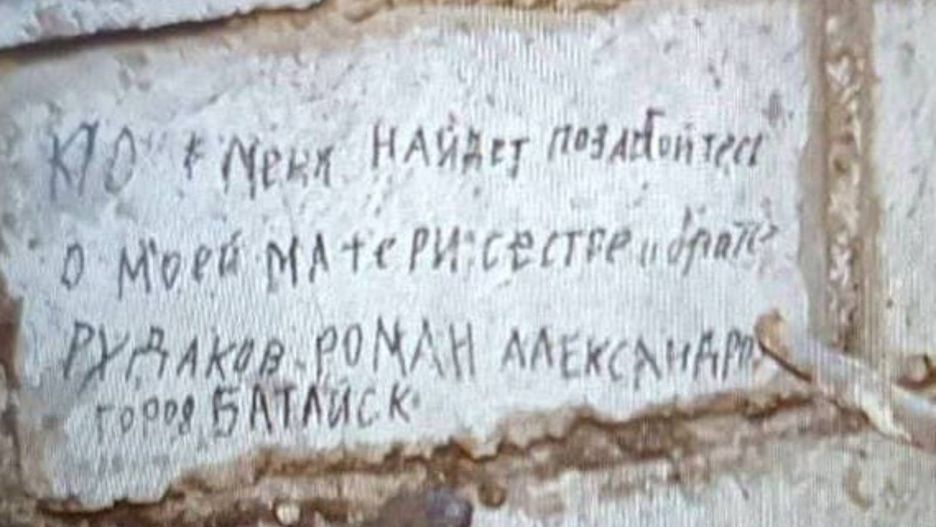 КТО меня НАЙДЕТ позаботтесь
о моей матери сестре и брате
РУДАКОВ РОМАН АЛЕКСАНДРО
город БАТАЙСК